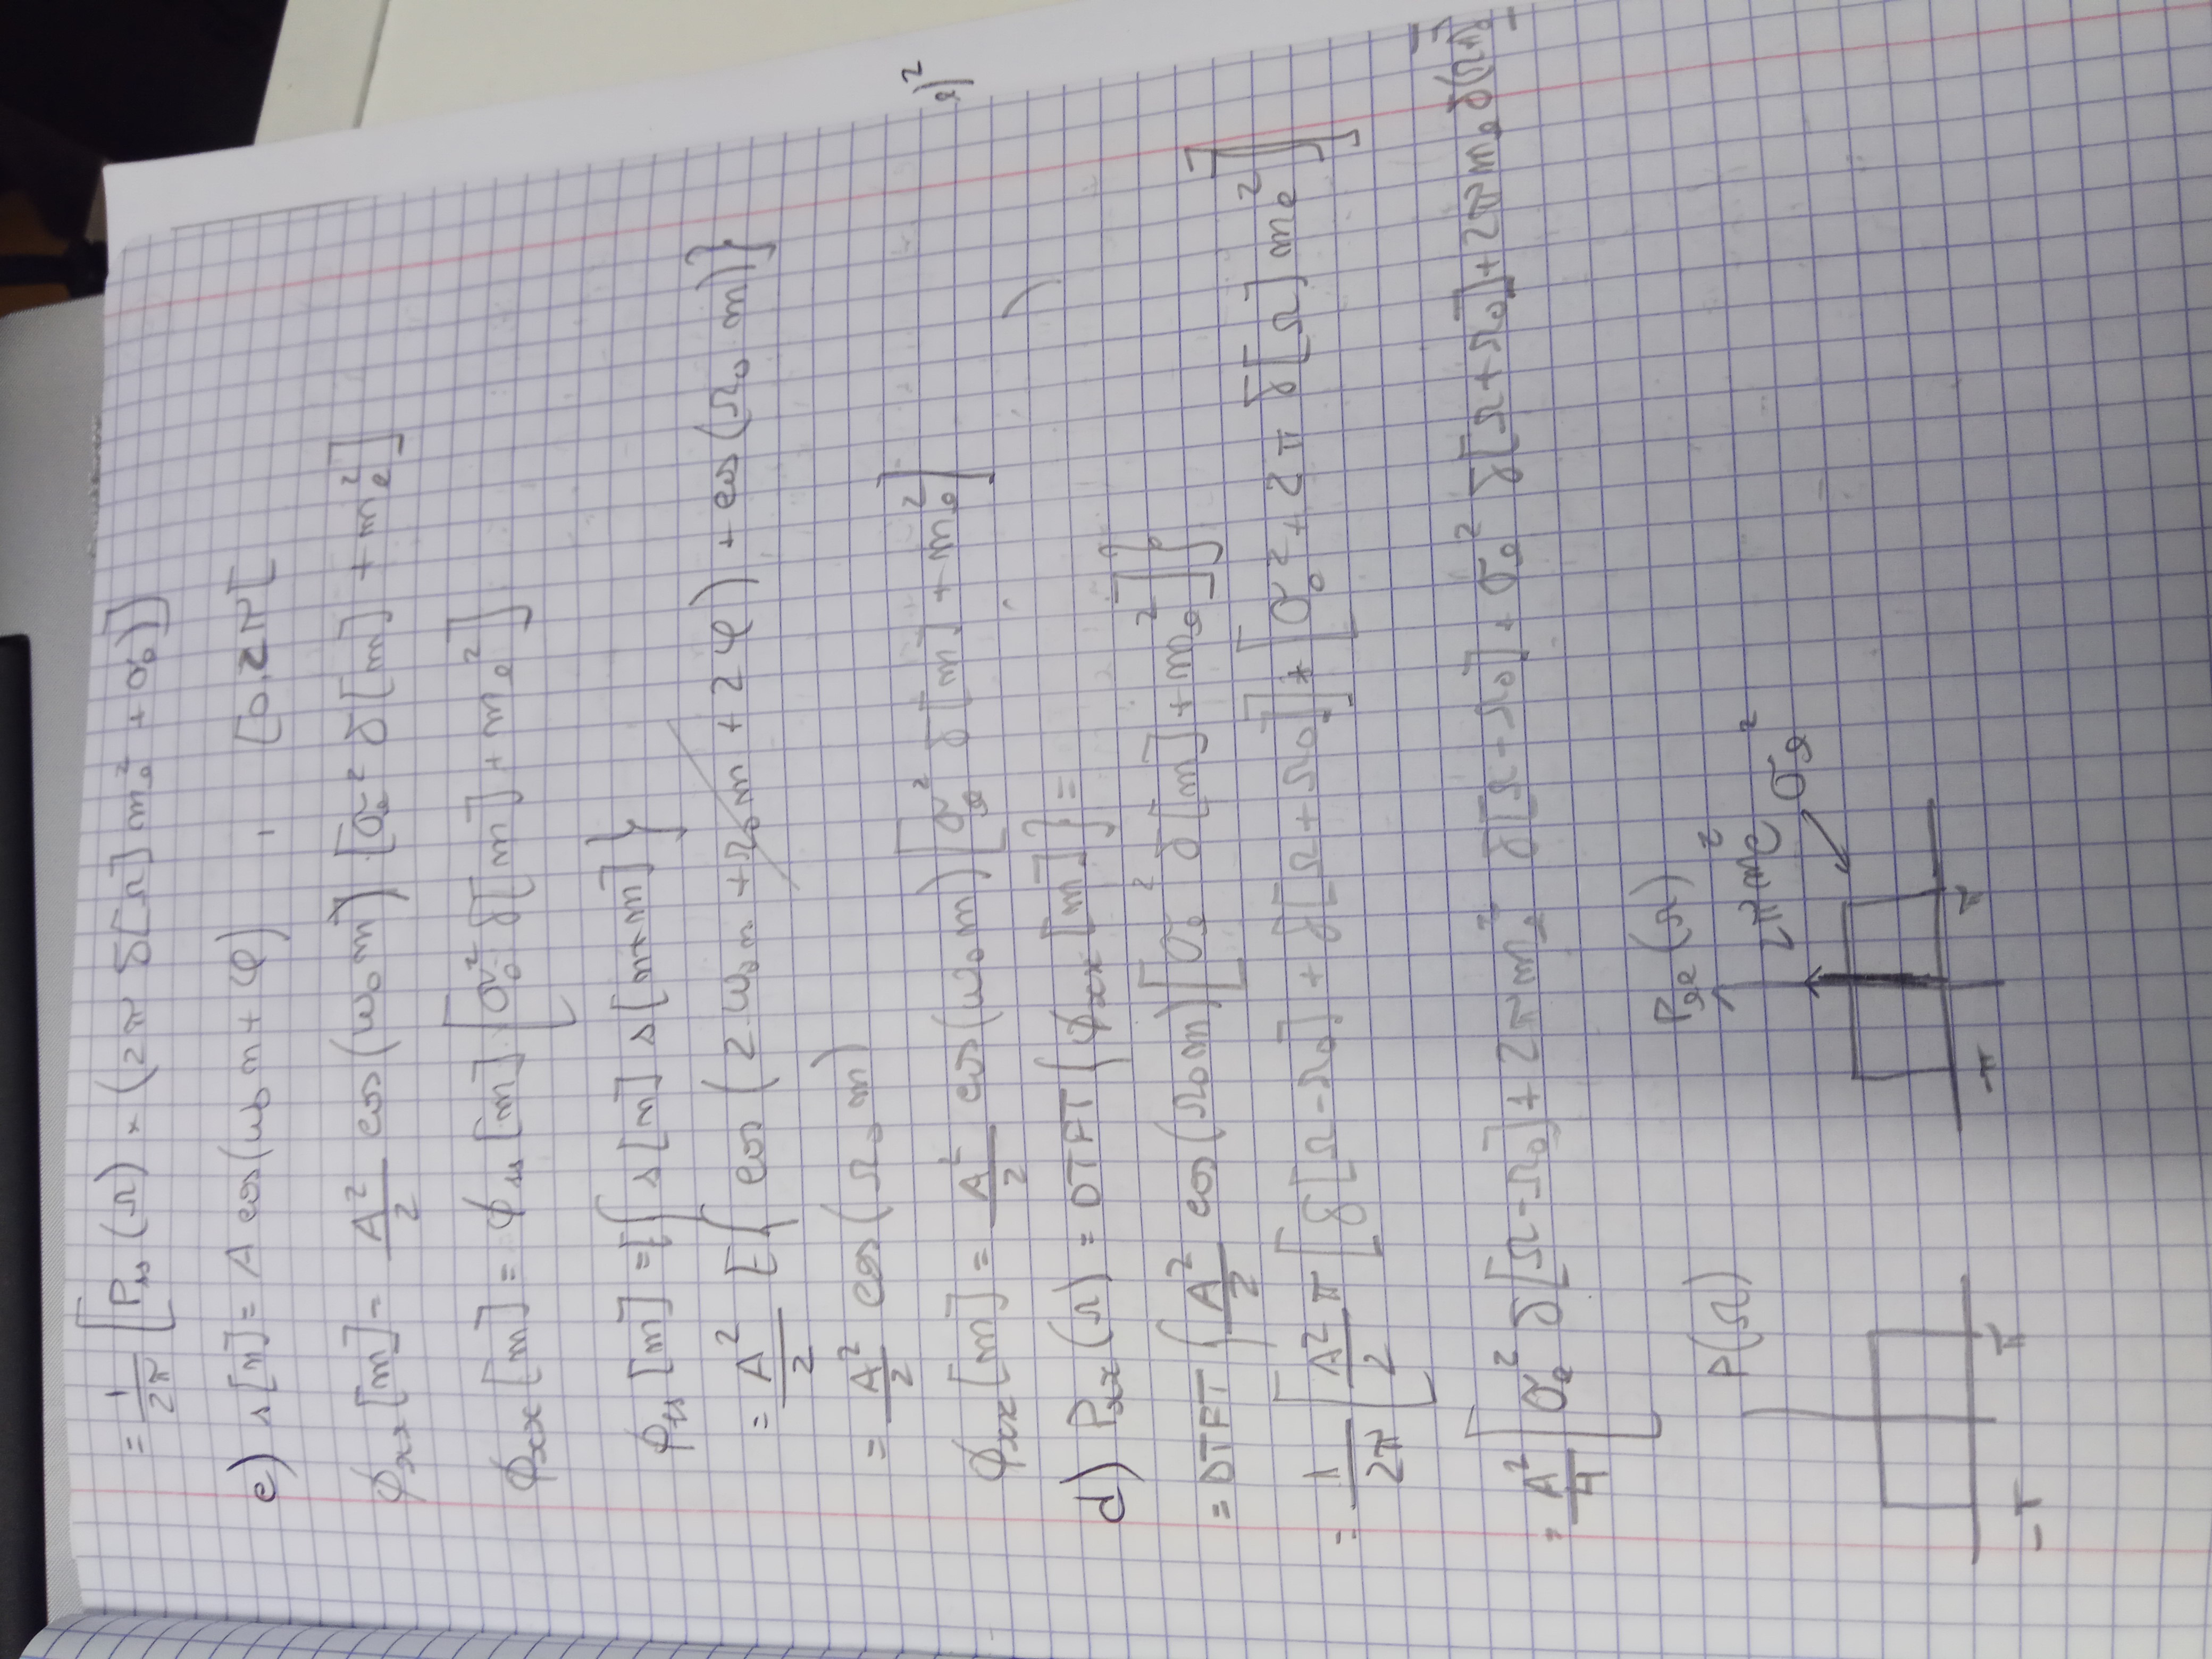 = 1/2π [P_ss(Ω) * (2π δ[Ω] m_e² + σ_e²)]
c) s[n] = A cos(ω₀n + φ) , [0,2π[
ϕ_xx[m] = A²/2 cos(ω₀m) · [σ_e² δ[m] + m_e²]
ϕ_xx[m] = ϕ_ss[m] [σ_e² δ[m] + m_e²]
ϕ_ss[m] = E{s[n] s[n+m]}
= A²/2 E{cos(2ω₀n + Ω₀m + 2φ) + cos(Ω₀ m)}
= A²/2 cos(Ω₀m)
e)²
ϕ_xx[m] = A²/2 cos(ω₀m) [σ_e² δ[m] + m_e²]
d) P_xx(Ω) = DTFT{ϕ_xx[m]} =
= DTFT{A²/2 cos(Ω₀m) [σ_e² δ[m] + m_e²]}
= 1/2π [A²/2 π [δ[Ω-Ω₀] + δ[Ω+Ω₀]] * [σ_e² + 2π δ[Ω] m_e²]]
= A²/4 [σ_e² δ[Ω-Ω₀] + 2π m_e² δ[Ω-Ω₀] + σ_e² δ[Ω+Ω₀] + 2π m_e
P(Ω)
P_ee(Ω)
2π m_e²
σ_e²
-π π
-π π